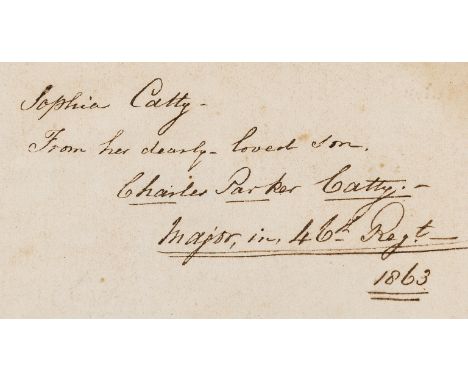 Sophia Catty -
From her dearly - loved son.
Charles Parker Catty. -
Major, in, 46th Regt.
1863